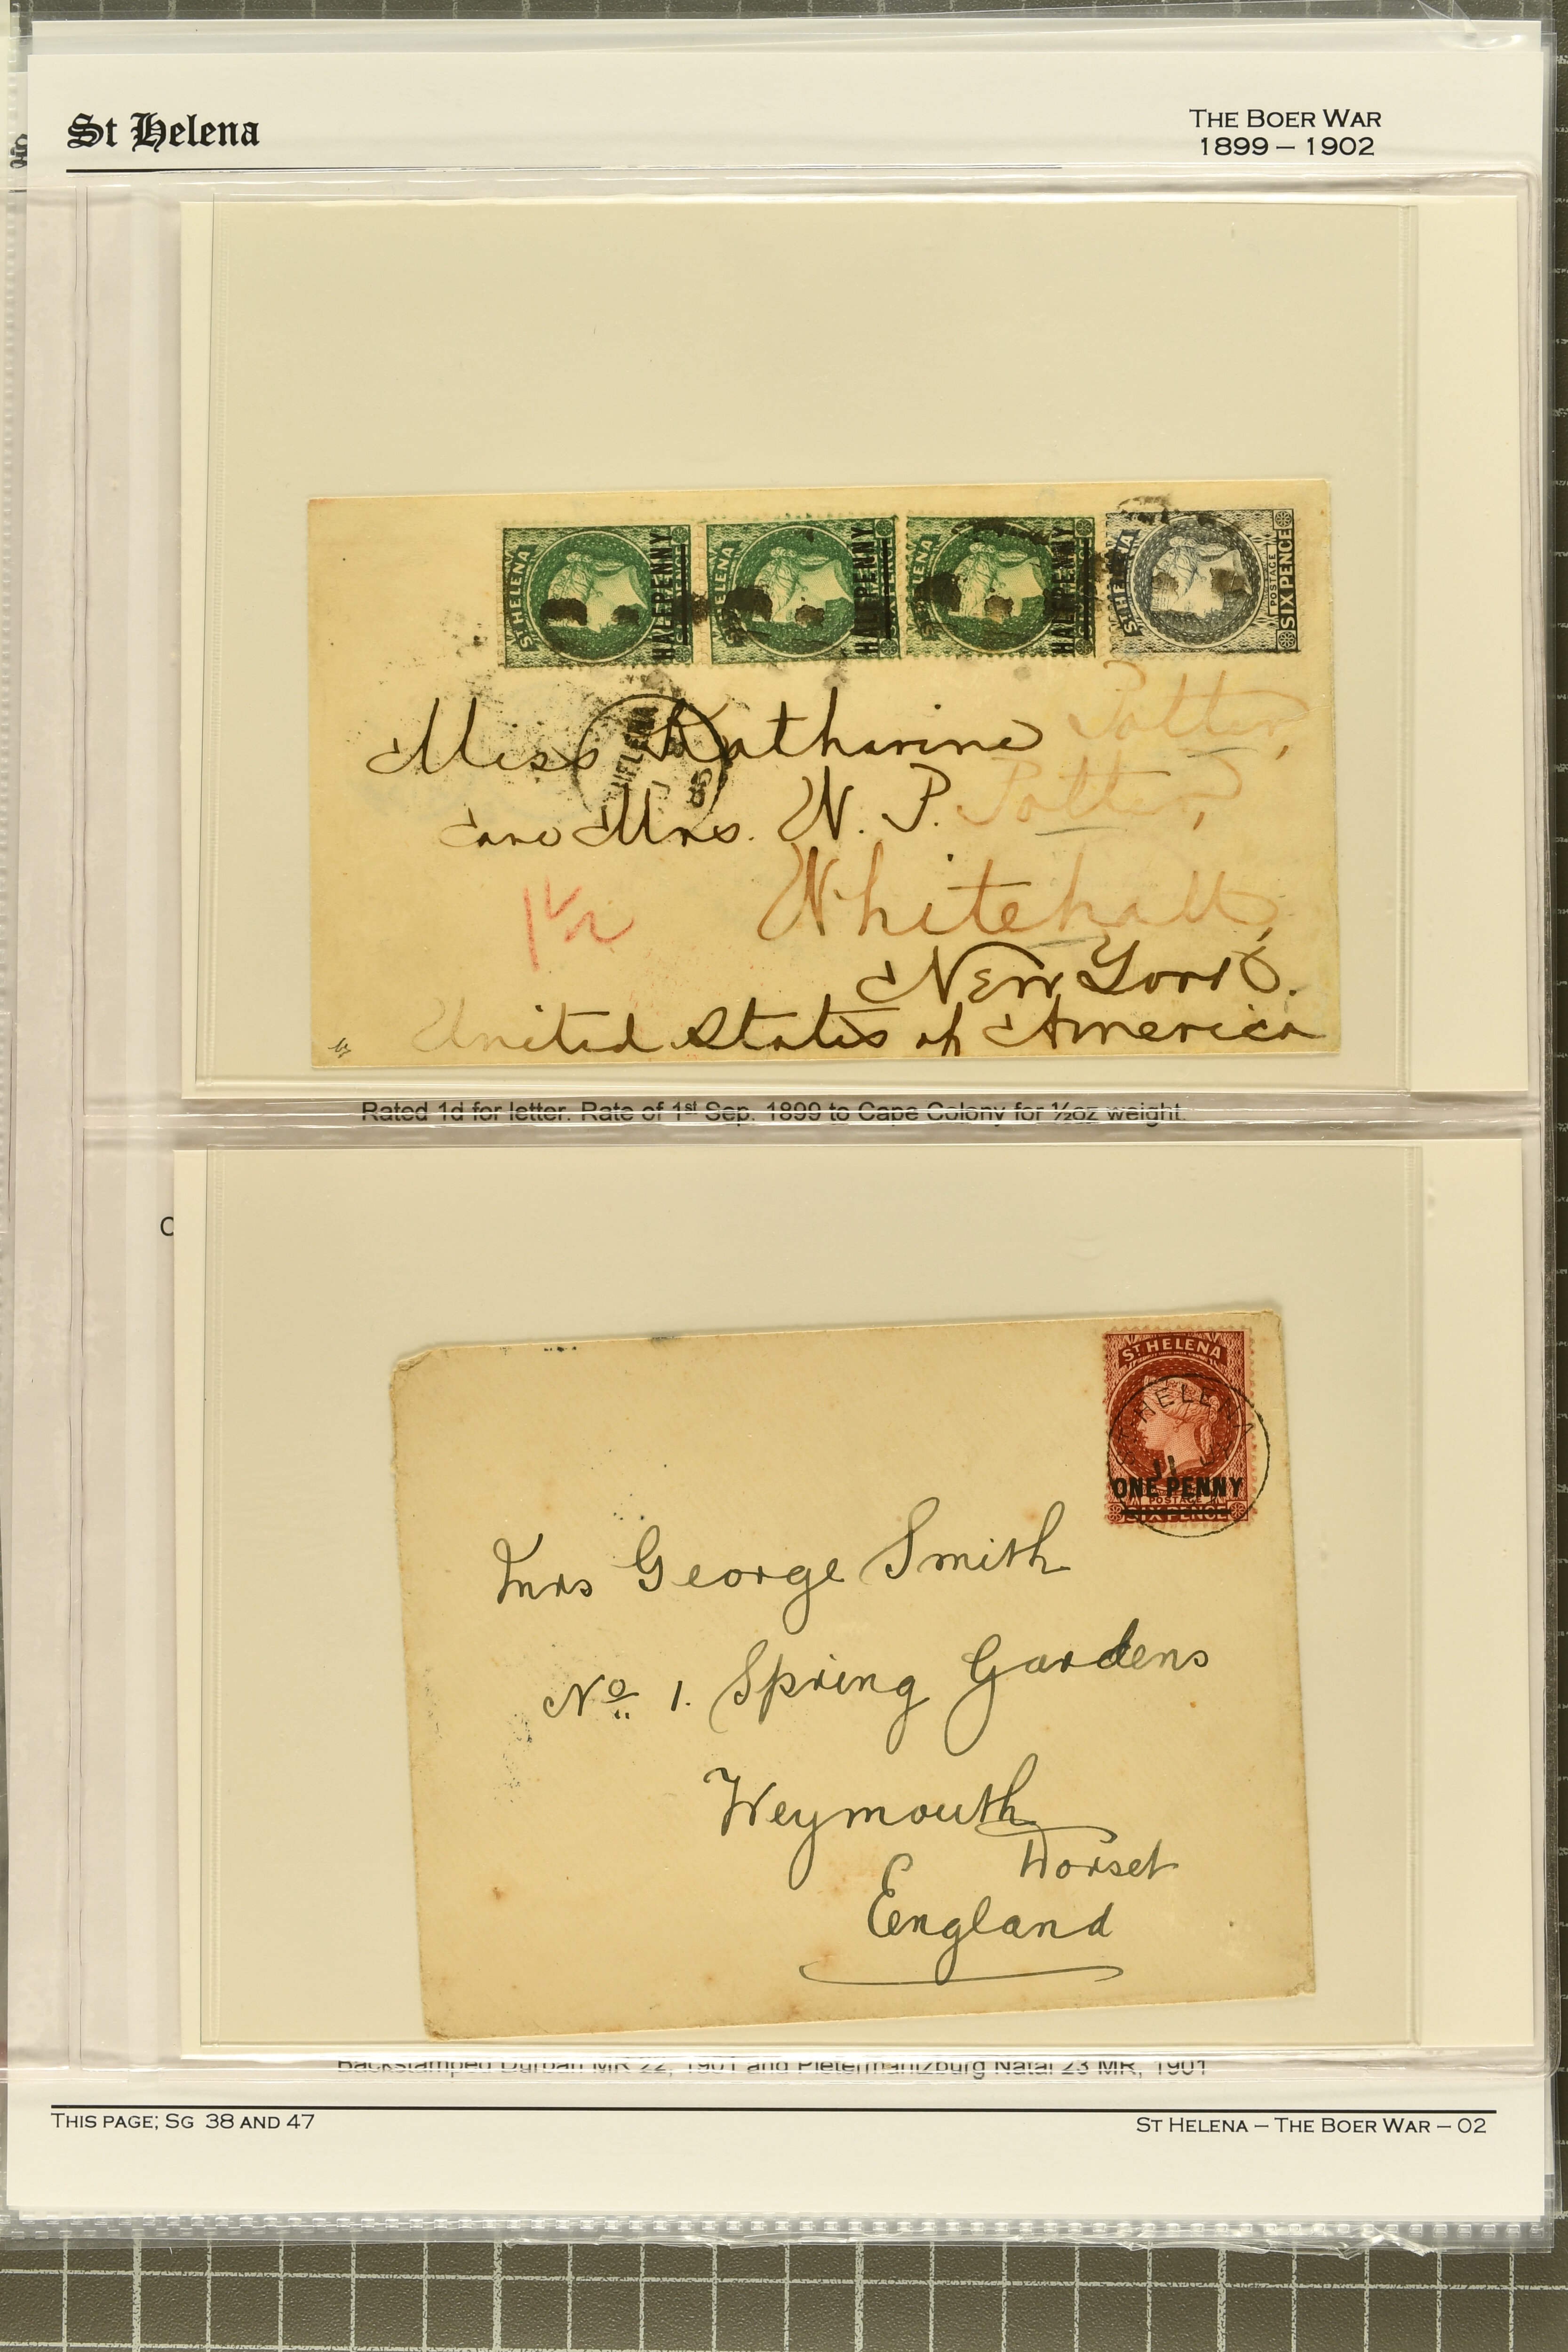 St Helena
THE BOER WAR
1899 – 1902
ST HELENA
HALFPENNY
HELENA
HALFPENNY
HELENA
HALFPENNY
ST HELENA
POSTAGE
SIX PENCE
HELENA
Miss Katharine Potter,
Care Mrs. W. P. Potter,
1½
Whitehall,
New York.
United States of America
Rated 1d for letter. Rate of 1st Sep. 1899 to Cape Colony for ½oz weight.
ST HELENA
HELENA
11
ONE PENNY
POSTAGE
SIX PENCE
Mrs George Smith
No 1. Spring Gardens
Weymouth
Dorset
England
Backstamped Durban MR 22, 1901 and Pietermaritzburg Natal 23 MR, 1901
THIS PAGE; SG 38 AND 47
ST HELENA – THE BOER WAR – 02